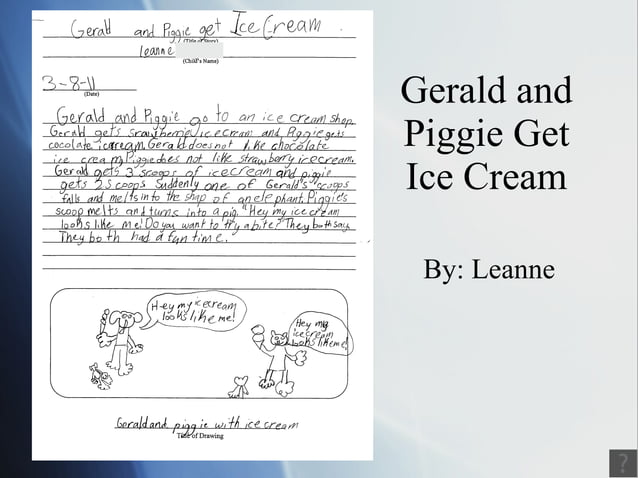 Gerald and Piggie get Ice Cream
(Title of Story)
Leanne
(Child's Name)
3-8-11
(Date)
Gerald and Piggie go to an ice cream shop.
Gerald gets srawberrie icecream and Piggie gets
cocolate icream. Gerald does not like chocolate
ice cream. Piggie does not like strawberry icecream.
Gerald gets 3 scoops of icecream and piggie
gets 2 scoops Suddenly one of Gerald's scoops
falls and melts into the shap of an elephant. Piggie's
scoop melts and turns into a pig. "Hey my ice cream
looks like me! Do you want to try a bite?" They both say.
They both had a fun time.
Hey my icecream
looks like me!
Hey my
icecream
looks like me!
Gerald and piggie with ice cream
Title of Drawing
Gerald and
Piggie Get
Ice Cream
By: Leanne
?